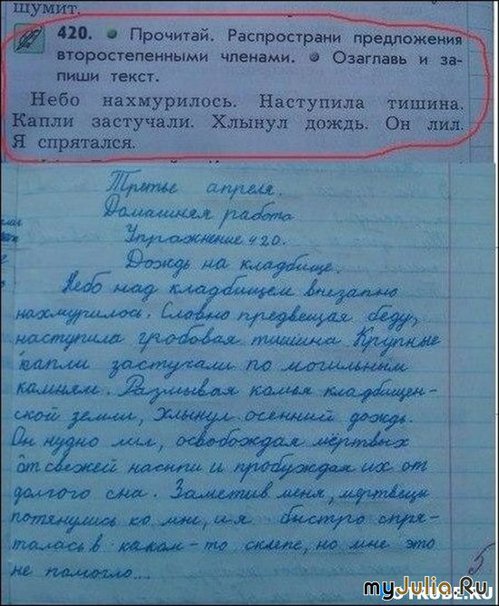 шумит.
420. Прочитай. Распространи предложения
второстепенными членами. Озаглавь и за-
пиши текст.
Небо нахмурилось. Наступила тишина.
Капли застучали. Хлынул дождь. Он лил.
Я спрятался.
Третье апреля.
Домашняя работа
Упражнение 420.
Дождь на кладбище.
Небо над кладбищем внезапно
нахмурилось. Словно предвещая беду,
наступила гробовая тишина Крупные
капли застучали по могильным
камням. Размывая комья кладбищен-
ской земли, Хлынул осенний дождь.
Он нудно лил, освобождая мёртвых
от свежей насыпи и пробуждая их от
долгого сна. Заметив меня, мертвецы
потянулись ко мне, а я быстро спря-
талась в каком-то склепе, но мне это
не помогло...
5
myJulia.Ru